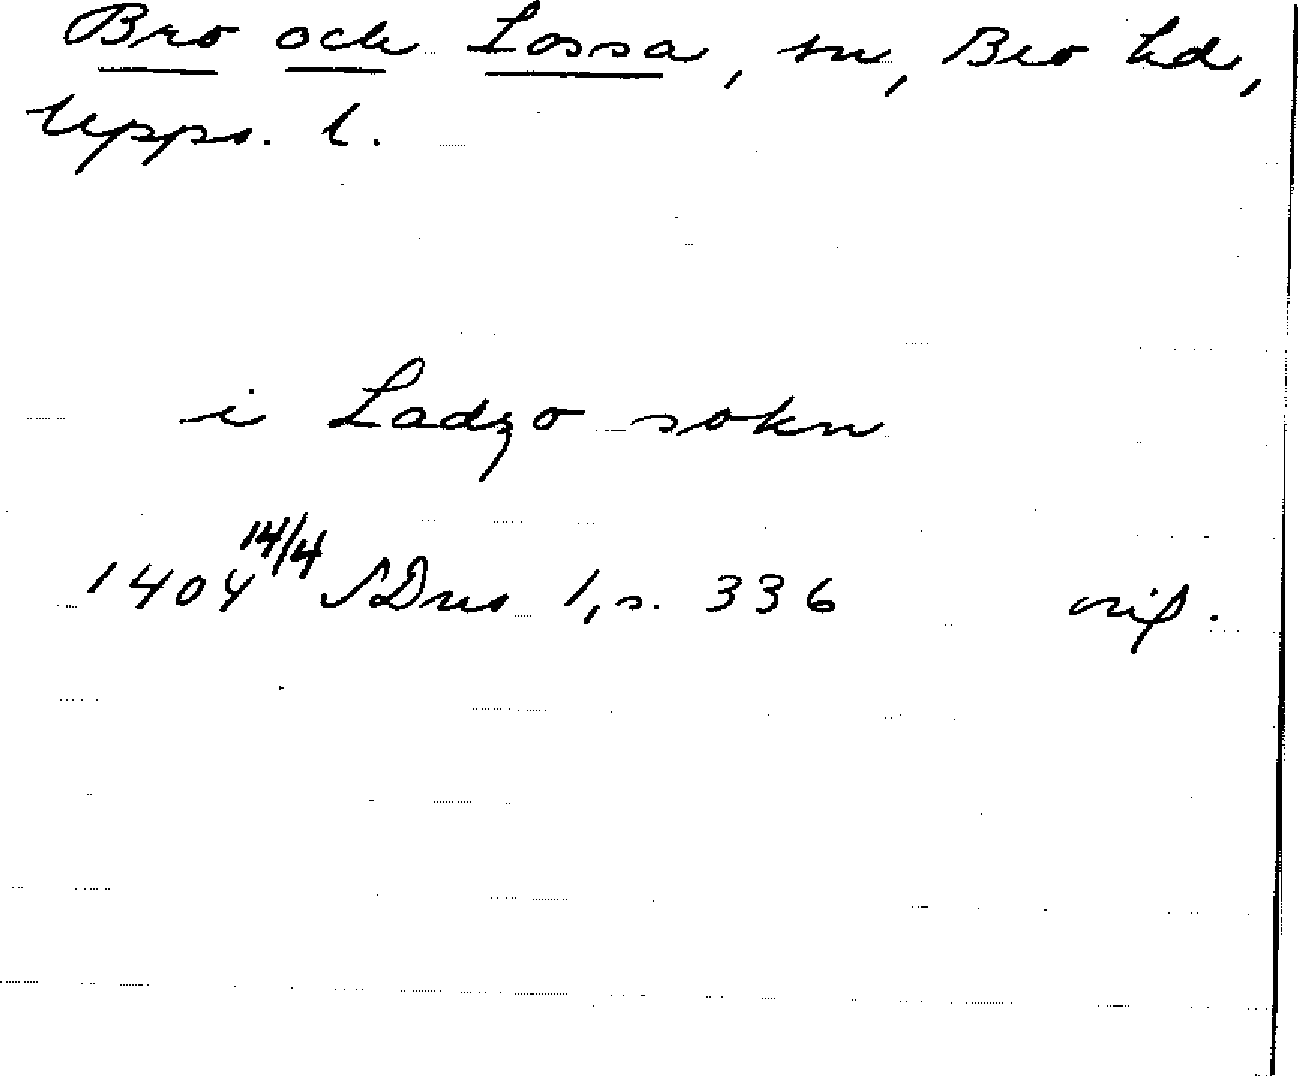 Bro och Lossa, sn, Bro hd,
Upps. l.
i Ladzo sokn
1404 14/4 SDns 1, s. 336 orig.